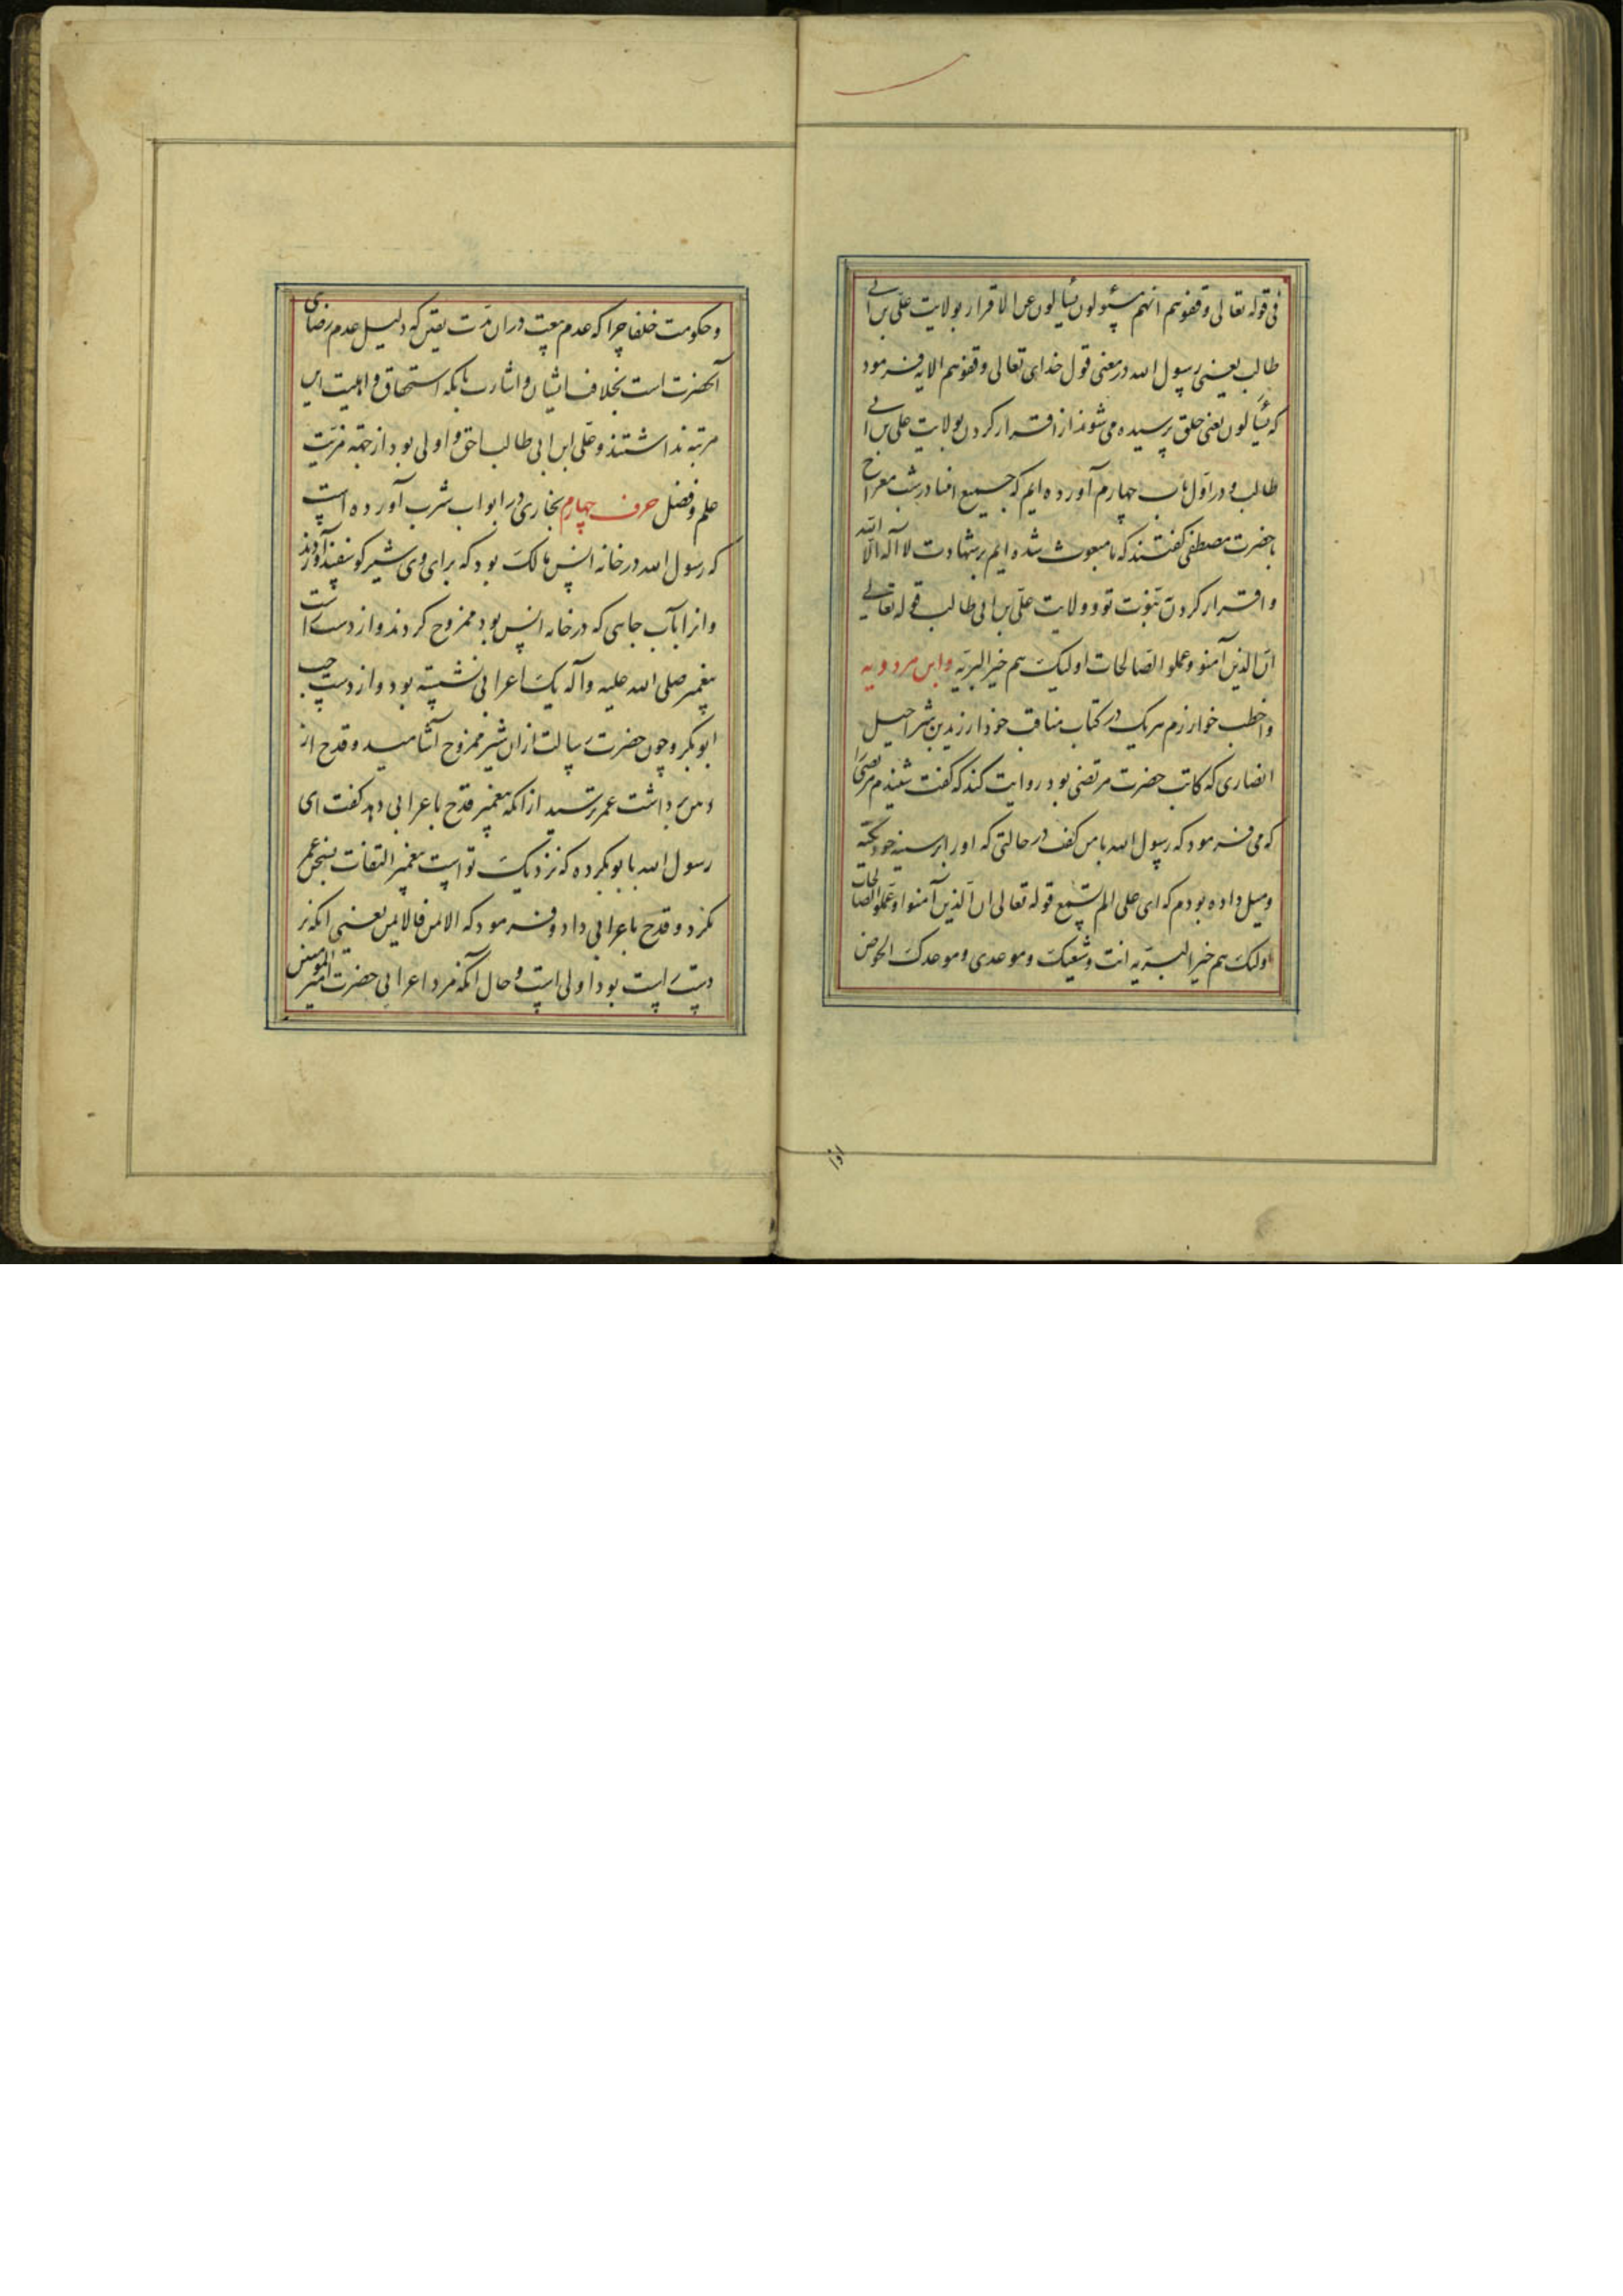 فی قوله تعالی وقفوهم انهم مسئولون یسالون عن الاقرار بولایت علی بن ابی
طالب یعنی رسول الله در معنی قول خدای تعالی وقفوهم الایه فرمود
که یسالون یعنی خلق پرسیده می شوند از اقرار کردن بولایت علی بن ابی
طالب و در اول باب چهارم آورده ایم که جمیع انبیا در شب معراج
با حضرت مصطفی گفتند که ما مبعوث شده ایم بر شهادت لا اله الا الله
و اقرار کردن نبوت تو و ولایت علی بن ابی طالب قوله تعالی
ان الذین آمنو وعملو الصالحات اولیک هم خیر البریه وابن مردویه
واخطب خوارزم هریک در کتاب مناقب خود از زید بن شراحیل
انصاری که کاتب حضرت مرتضی بود روایت کند که گفت شنیدم مرتضی را
که می فرمود که رسول الله با من گفت در حالتی که او را بر سینه خود تکیه
ومیل داده بودم که ای علی الم تسمع قوله تعالی ان الذین آمنوا وعملو الصالحات
اولیک هم خیر البریه انت وشیعتک وموعدی وموعدک الحوض
اذا
وحکومت خلفا چرا که عدم بیعت در ان مدت یقین که دلیل عدم رضای
آنحضرت است بخلاف ایشان واشارت بانکه استحقاق و اهلیت این
مرتبه نداشتند وعلی ابن ابی طالب احق و اولی بود از جهة مزیت
علم وفضل حرف چهارم بخاری در ابواب شرب آورده است
که رسول الله در خانه انس مالک بود که برای وی شیر کوسفند آوردند
وانرا بآب چاهی که در خانه انس بود ممزوج کردند واز دست راست
پیغمبر صلی الله علیه وآله یک اعرابی نشسته بود واز دست چپ
ابوبکر وچون حضرت رسالت ازان شیر ممزوج آشامید وقدح از
دهن برداشت عمر ترسید از انکه پیغمبر قدح باعرابی دهد گفت ای
رسول الله با بوبکر ده که نزدیک تو است پیغمبر التفات بسخن عمر
نکرد وقدح باعرابی داد وفرمود که الایمن فالایمن یعنی انکه بر
دست راست بود اولی است وحال آنکه مرد اعرابی حضرت امیر المومنین